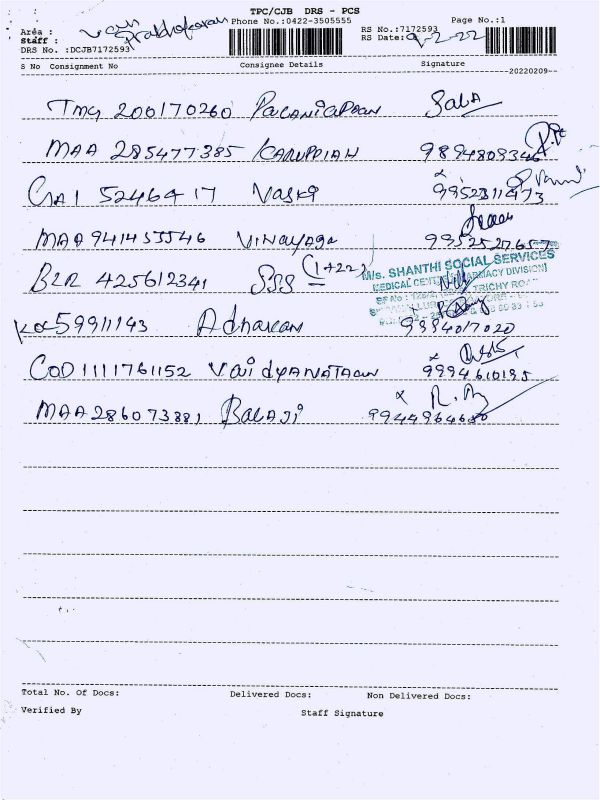 TPC/CJB DRS - PCS
Area : Van Prabhakaran Phone No.:0422-3505555 Page No.:1
Staff : RS No.:7172593
DRS No. :DCJB7172593 RS Date: 9-2-22
S No Consignment No Consignee Details Signature
20220209
TMG 200170260 Palaniappan Sala
MAA 285477385 KARUPPIAH 9894809346
52464 17 Vaski 9952311473
MAA 941455546 VINAYAGA 9952527657
BLR 425612341 SSS (1+22)
M/s. SHANTHI SOCIAL SERVICES
MEDICAL CENTRE (PHARMACY DIVISION)
TRICHY ROAD
59911143 9994017020
COD 1111761152 Vaidyanataan 9994610195
MAA 286073881 BALAJI 9944964680
Total No. Of Docs: Delivered Docs: Non Delivered Docs:
Verified By Staff Signature